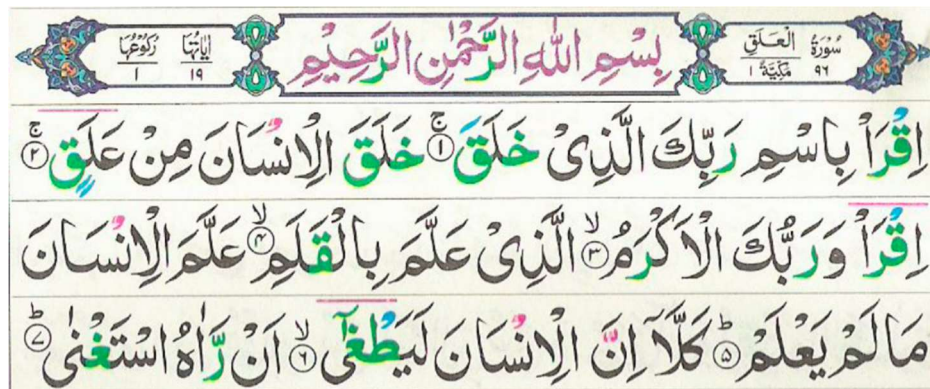 سُوْرَةُ الْعَلَقِ ٩٦ مَكِّيَّةٌ ١ بِسْمِ اللّٰهِ الرَّحْمٰنِ الرَّحِيْمِ اٰيَاتُهَا ١٩ رُكُوْعُهَا ١
اِقْرَاْ بِاسْمِ رَبِّكَ الَّذِىْ خَلَقَ ۚ‏﴿۱﴾ خَلَقَ الْاِنْسَانَ مِنْ عَلَقٍ ۚ‏﴿۲﴾
اِقْرَاْ وَرَبُّكَ الْاَكْرَمُ ۙ‏﴿۳﴾ الَّذِىْ عَلَّمَ بِالْقَلَمِ ۙ‏﴿۴﴾ عَلَّمَ الْاِنْسَانَ
مَا لَمْ يَعْلَمْ ؕ‏﴿۵﴾ كَلَّاۤ اِنَّ الْاِنْسَانَ لَيَطْغٰٓى ۙ‏﴿۶﴾ اَنْ رَّاٰهُ اسْتَغْنٰى ؕ‏﴿۷﴾